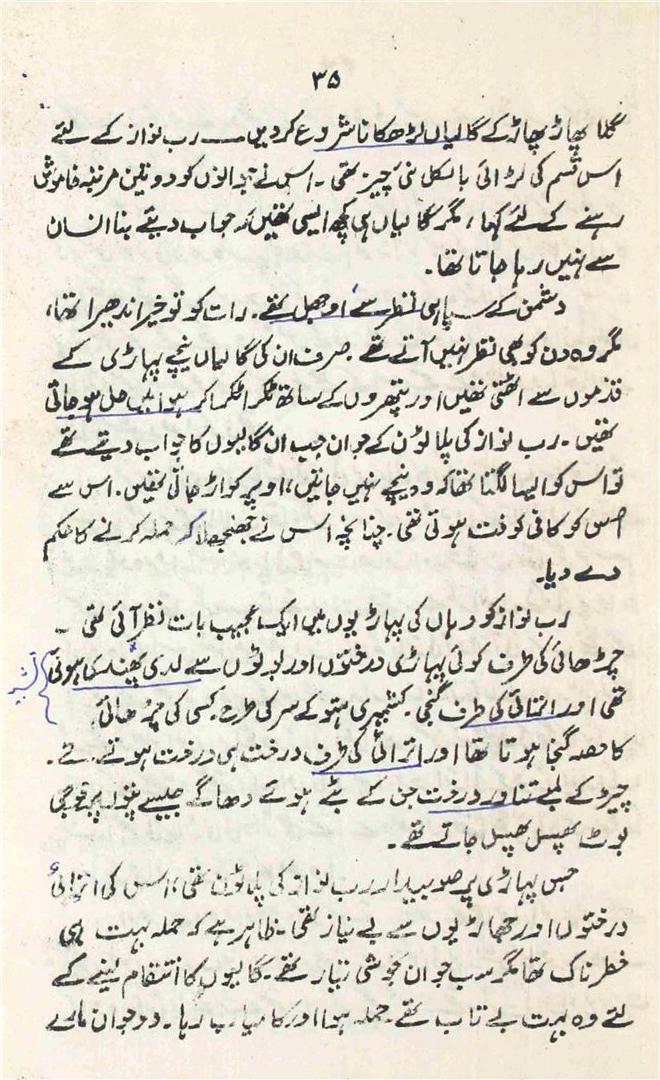 ۳۵
گلا پھاڑ پھاڑ کے گالیاں لڑھکانا شروع کر دیں ــــ رب نواز کے لئے
اس قسم کی لڑائی بالکل نئی چیز تھی ۔ اس نے جوانوں کو دو تین مرتبہ خاموش
رہنے کے لئے کہا ، مگر گالیاں ہی کچھ ایسی تھیں کہ جواب دیئے بنا انسان
سے نہیں رہا جاتا تھا ۔
دشمن کے سپاہی نظر سے اوجھل تھے ۔ رات کو تو خیر اندھیرا تھا ،
مگر وہ دن کو بھی نظر نہیں آتے تھے ۔ صرف ان کی گالیاں نیچے پہاڑی کے
قدموں سے اٹھتی تھیں اور پتھروں کے ساتھ ٹکرا ٹکرا کر ہوا میں حل ہو جاتی
تھیں ۔ رب نواز کی پلاٹون کے جوان جب ان گالیوں کا جواب دیتے تھے
تو اس کو ایسا لگتا تھا کہ وہ نیچے نہیں جاتیں ، اوپر کو اڑ جاتی تھیں ۔ اس سے
اس کو کافی کوفت ہوتی تھی ۔ چنانچہ اس نے جھنجھلا کر حملہ کرنے کا حکم
دے دیا ۔
رب نواز کو وہاں کی پہاڑیوں میں ایک عجیب بات نظر آئی تھی ۔
چڑھائی کی طرف کوئی پہاڑی درختوں اور بوٹوں سے لدی پھندی ہوئی
تھی اور اترائی کی طرف گنجی ۔ کشمیری ہتو کے سر کی طرح ۔ کسی کی چڑھائی
کا حصہ گنجا ہوتا تھا اور اترائی کی طرف درخت ہی درخت ہوتے تھے ۔
چیڑ کے لمبے تناور درخت جن کے بٹے ہوئے دھاگے جیسے پتوں پر فوجی
بوٹ پھسل پھسل جاتے تھے ۔
جس پہاڑی پر صوبیدار رب نواز کی پلاٹون تھی ، اس کی اترائی
درختوں اور جھاڑیوں سے بے نیاز تھی ۔ ظاہر ہے کہ حملہ بہت ہی
خطرناک تھا مگر سب جوان بخوشی تیار تھے ۔ گالیوں کا انتقام لینے کے
لئے وہ بہت بے تاب تھے ۔ حملہ ہوا اور کامیاب رہا ۔ دو جوان مارے